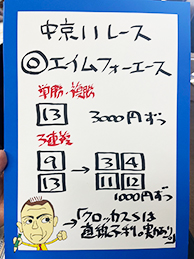 中京11レース
◎エイムフォーエース
単勝・複勝
13 3000円ずつ
3連複
9 → 3 4
13 11 12
1000円ずつ
→「クロッカスSは